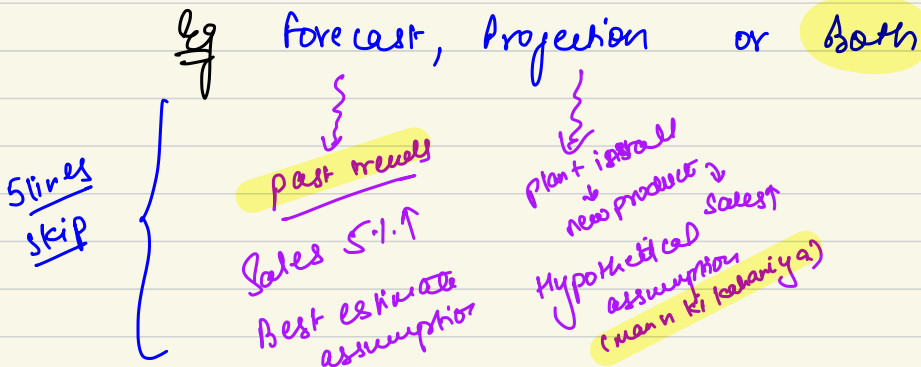 Eg Forecast, Projection or Both
5 lines
skip
past trends
Sales 5%↑
Best estimate
assumption
Plant install
new product
Sales↑
Hypothetical
assumption
(mann ki kahaniya)